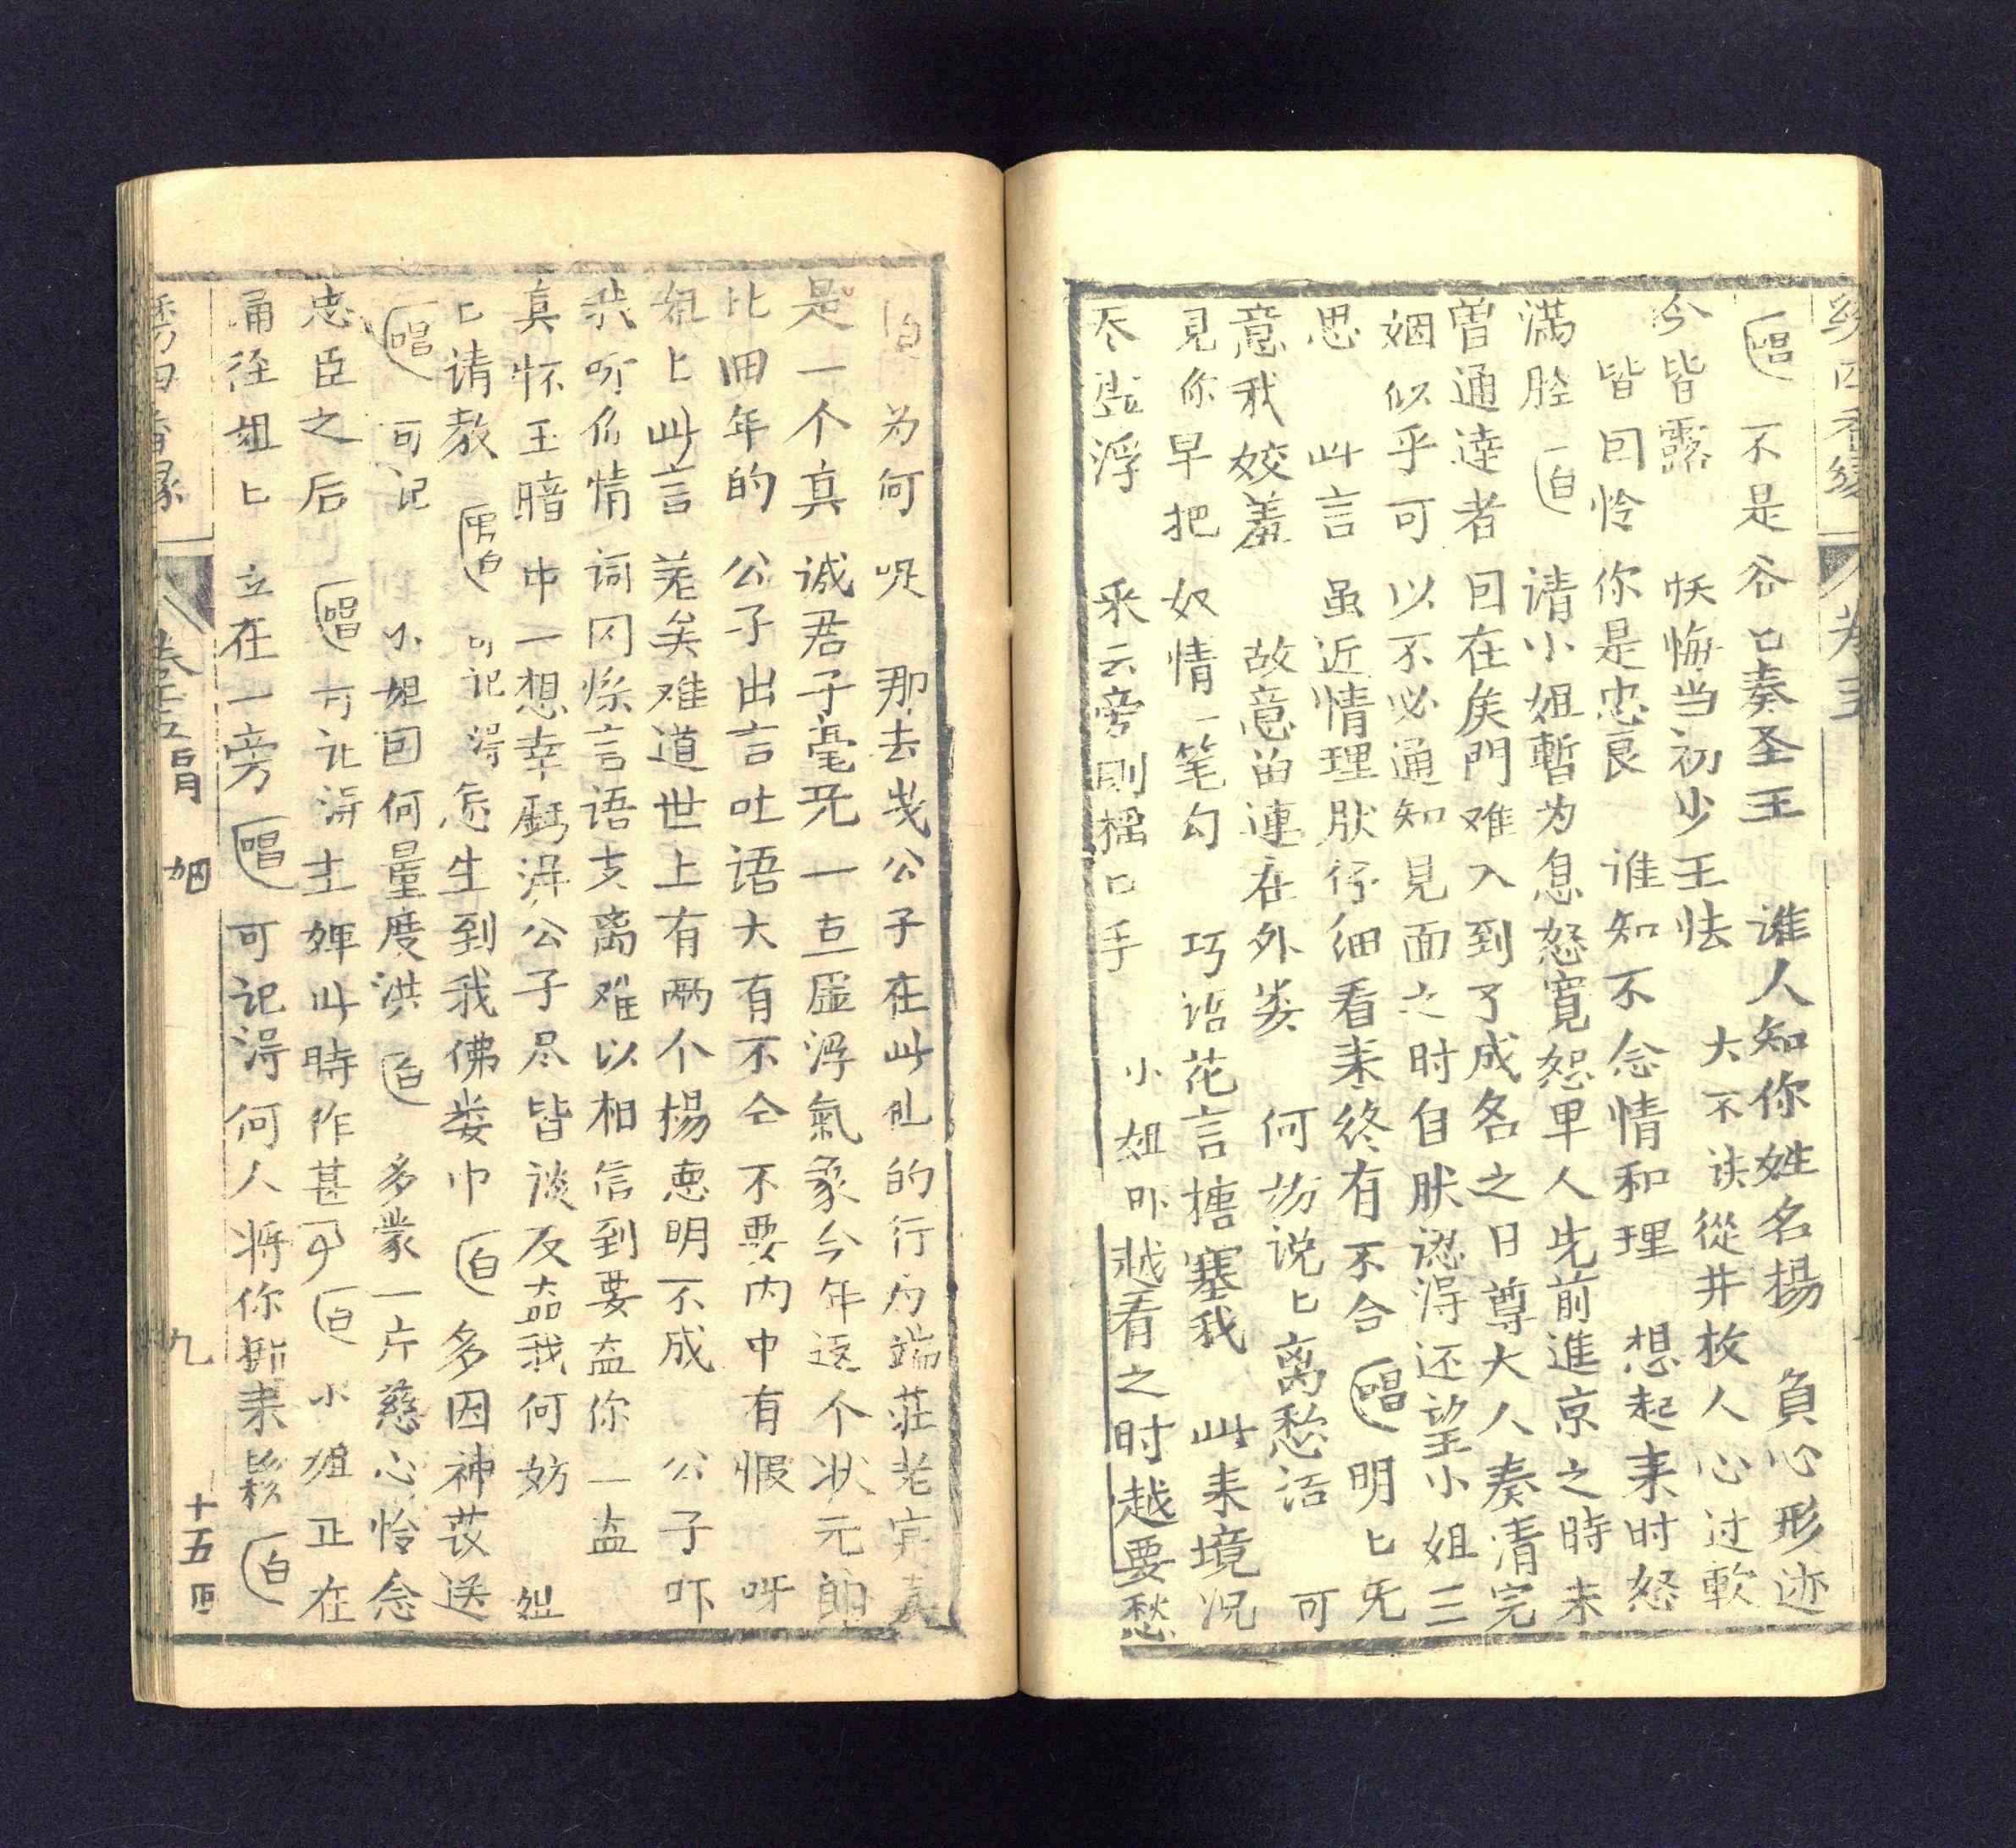 唱 不是谷匕奏圣王 谁人知你姓名揚 負心形迹
今皆露 恹悔当初少主怯 大不该從井救人心过軟
皆因怜你是忠良 谁知不念情和理 想起来时怒
满腔 白 请小姐暫为息怒寛恕単人先前進京之時未
曽通逹者因在矦門难入到了成名之日尊大人奏清完
姻似乎可以不必通知見面之时自肰認淂还望小姐三
思 此言虽近情理肰仔细看来终有不合 唱 明匕旡
意我姣羞 故意㽞連在外娄 何妨说匕离愁话 可
見你早把奴情一笔勾 巧语花言搪塞我 此来境况
不 浮 采云旁則摇匕手 小姐吓越看之时越要愁
白 为何呢 那去岁公子在此他的行为端莊老实真
是一个真诚君子毫旡一点虛浮氣象今年这个状元郎
比旧年的公子出言吐语大有不仝不要内中有假 呀
姐匕此言差矣难道世上有两个楊惠明不成 公子吓
我听你情词闪烁言语支离难以相信到要盍你一盍
真怀玉暗中一想幸虧淂公子尽皆谈及盍我何妨 姐
匕请教 男白 可记淂怎生到我佛娄中 白 多因神䒾送
唱 可记 小姐因何量度洪 白 多蒙一片慈心怜念
忠臣之后 唱 可记淂主婢此時作甚 白 小姐正在
诵径姐匕立在一旁 唱 可记淂何人将你 来 白
绣四香緣 卷十五 肙 姻 九 十五